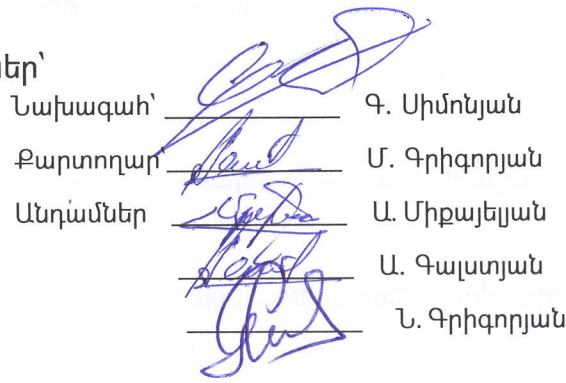 ներ՝
Նախագահ՝ Գ. Սիմոնյան
Քարտուղար՝ Մ. Գրիգորյան
Անդամներ Ա. Միքայելյան
Ա. Գալստյան
Ն. Գրիգորյան